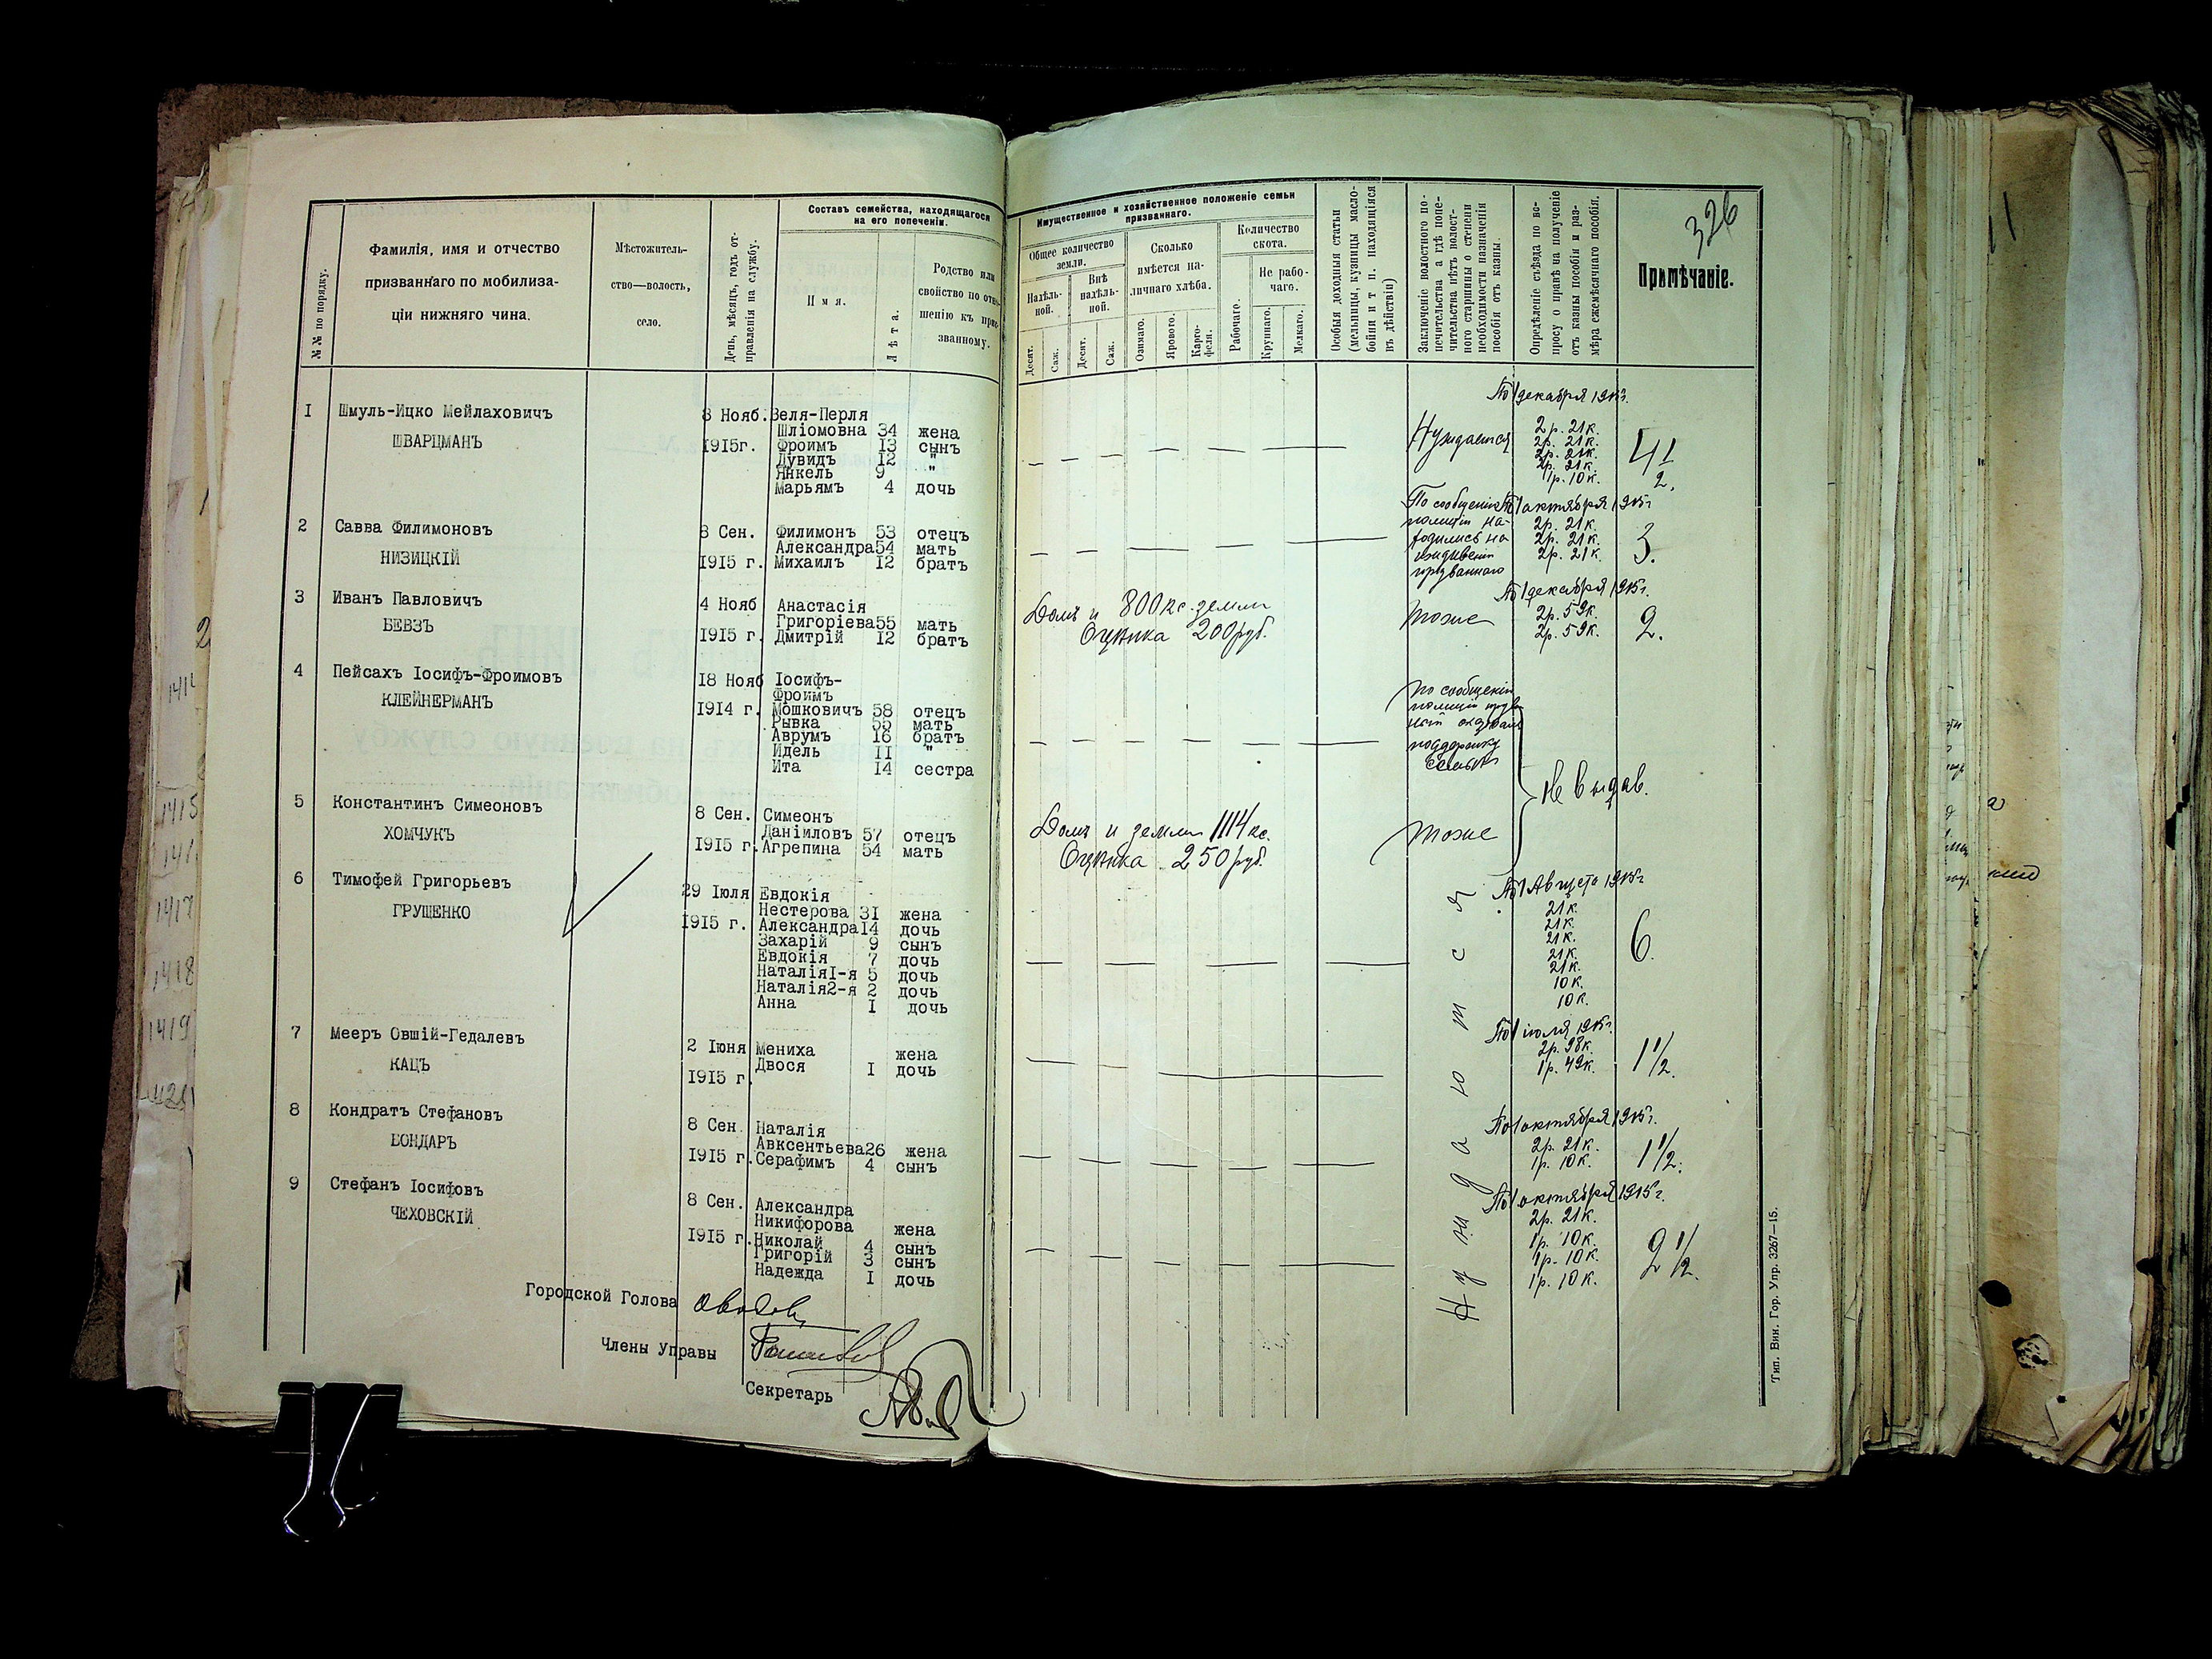 326
№№ по порядку.
Фамилія, имя и отчество
призваннаго по мобилиза-
ціи нижняго чина.
Мѣстожитель-
ство—волость,
село.
День, мѣсяцъ, годъ от-
правленія на службу.
Составъ семейства, находящагося
на его попеченіи.
Имя.
Лѣта.
Родство или
свойство по отно-
шенію къ приз-
званному.
Имущественное и хозяйственное положеніе семьи
призваннаго.
Общее количество
земли.
Надѣль-
ной.
Внѣ
надѣль-
ной.
Десят.
Саж.
Десят.
Саж.
Сколько
имѣется на-
личнаго хлѣба.
Озимаго.
Яроваго.
Карто-
фели.
Количество
скота.
Рабочаго.
Не рабо-
чаго.
Крупнаго.
Мелкаго.
Особыя доходныя статьи
(мельницы, кузницы масло-
бойни и т п. находящіяся
въ дѣйствіи)
Заключеніе волостного по-
печительства а гдѣ попе-
чительства нѣтъ волост-
ного старшины о степени
необходимости назначенія
пособія отъ казны.
Опредѣленіе съѣзда по во-
просу о правѣ на полученіе
отъ казны пособія и раз-
мѣра ежемѣсячнаго пособія.
Примѣчаніе.
I Шмуль-Ицко Мейлаховичъ
ШВАРЦМАНЪ
8 Нояб.
1915г.
Зеля-Перля
Шліомовна 34 жена
Фроимъ 13 сынъ
Дувидъ 12 "
Янкель 9 "
Марьямъ 4 дочь
Нуждается
По 1 декабря 1915г.
2р. 21к.
2р. 21к.
2р. 21к.
2р. 21к.
1р. 10к.
4 1/2.
2 Савва Филимоновъ
НИЗИЦКІЙ
8 Сен.
1915 г.
Филимонъ 53 отецъ
Александра 54 мать
Михаилъ 12 братъ
По сообщенію
полиціи на-
ходились на
иждивеніи
призваннаго
По 1 октября 1915г
2р. 21к.
2р. 21к.
2р. 21к.
3.
3 Иванъ Павловичъ
БЕВЗЪ
4 Нояб
1915 г.
Анастасія
Григоріева 55 мать
Дмитрій 12 братъ
Домъ и 800 кс. земли
Оцѣнка 200 руб.
тоже
По 1 декабря 1915г.
2р. 59к.
2р. 59к.
2.
4 Пейсахъ Іосифъ-Фроимовъ
КЛЕЙНЕРМАНЪ
18 Нояб
1914 г.
Іосифъ-
Фроимъ
Мошковичъ 58 отецъ
Рывка 55 мать
Аврумъ 16 братъ
Идель II "
Ита 14 сестра
по сообщенію
полиціи
поддержку
семьѣ
Не выдав.
5 Константинъ Симеоновъ
ХОМЧУКЪ
8 Сен.
1915 г.
Симеонъ
Даниловъ 57 отецъ
Агрепина 54 мать
Домъ и земли 1114 кс.
Оцѣнка 250 руб.
тоже
6 Тимофей Григорьевъ
ГРУШЕНКО
29 Іюля
1915 г.
Евдокія
Нестерова 31 жена
Александра 14 дочь
Захарій 9 сынъ
Евдокія 7 дочь
Наталія I-я 5 дочь
Наталія 2-я 2 дочь
Анна I дочь
По 1 Августа 1915г
21к.
21к.
21к.
21к.
21к.
10к.
10к.
6.
Нуждаются
7 Мееръ Овшій-Гедалевъ
КАЦЪ
2 Іюня
1915 г.
Мениха жена
Двося I дочь
По 1 іюля 1915г.
2р. 98к.
1р. 49к.
1 1/2.
8 Кондратъ Стефановъ
БОНДАРЪ
8 Сен.
1915 г.
Наталія
Авксентьева 26 жена
Серафимъ 4 сынъ
По 1 октября 1915г.
2р. 21к.
1р. 10к.
1 1/2.
9 Стефанъ Іосифовъ
ЧЕХОВСКІЙ
8 Сен.
1915 г.
Александра
Никифорова жена
Николай 4 сынъ
Григорій 3 сынъ
Надежда I дочь
По 1 октября 1915г.
2р. 21к.
1р. 10к.
1р. 10к.
1р. 10к.
2 1/2.
Городской Голова
Члены Управы
Секретарь
Тип. Вин. Гор. Упр. 3267—15.
1415
1417
1418
1419